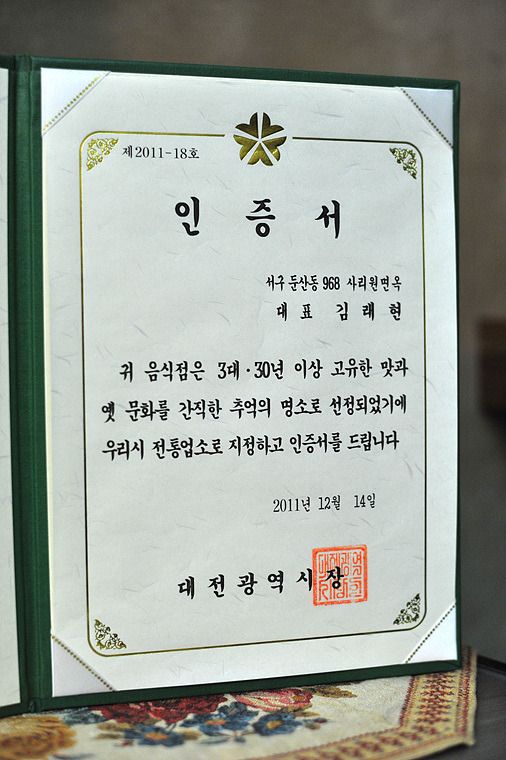 제2011-18호
인 증 서
서구 둔산동 968 사리원면옥
대 표 김 래 현
귀 음식점은 3대·30년 이상 고유한 맛과
옛 문화를 간직한 추억의 명소로 선정되었기에
우리시 전통업소로 지정하고 인증서를 드립니다
2011년 12월 14일
대 전 광 역 시 장